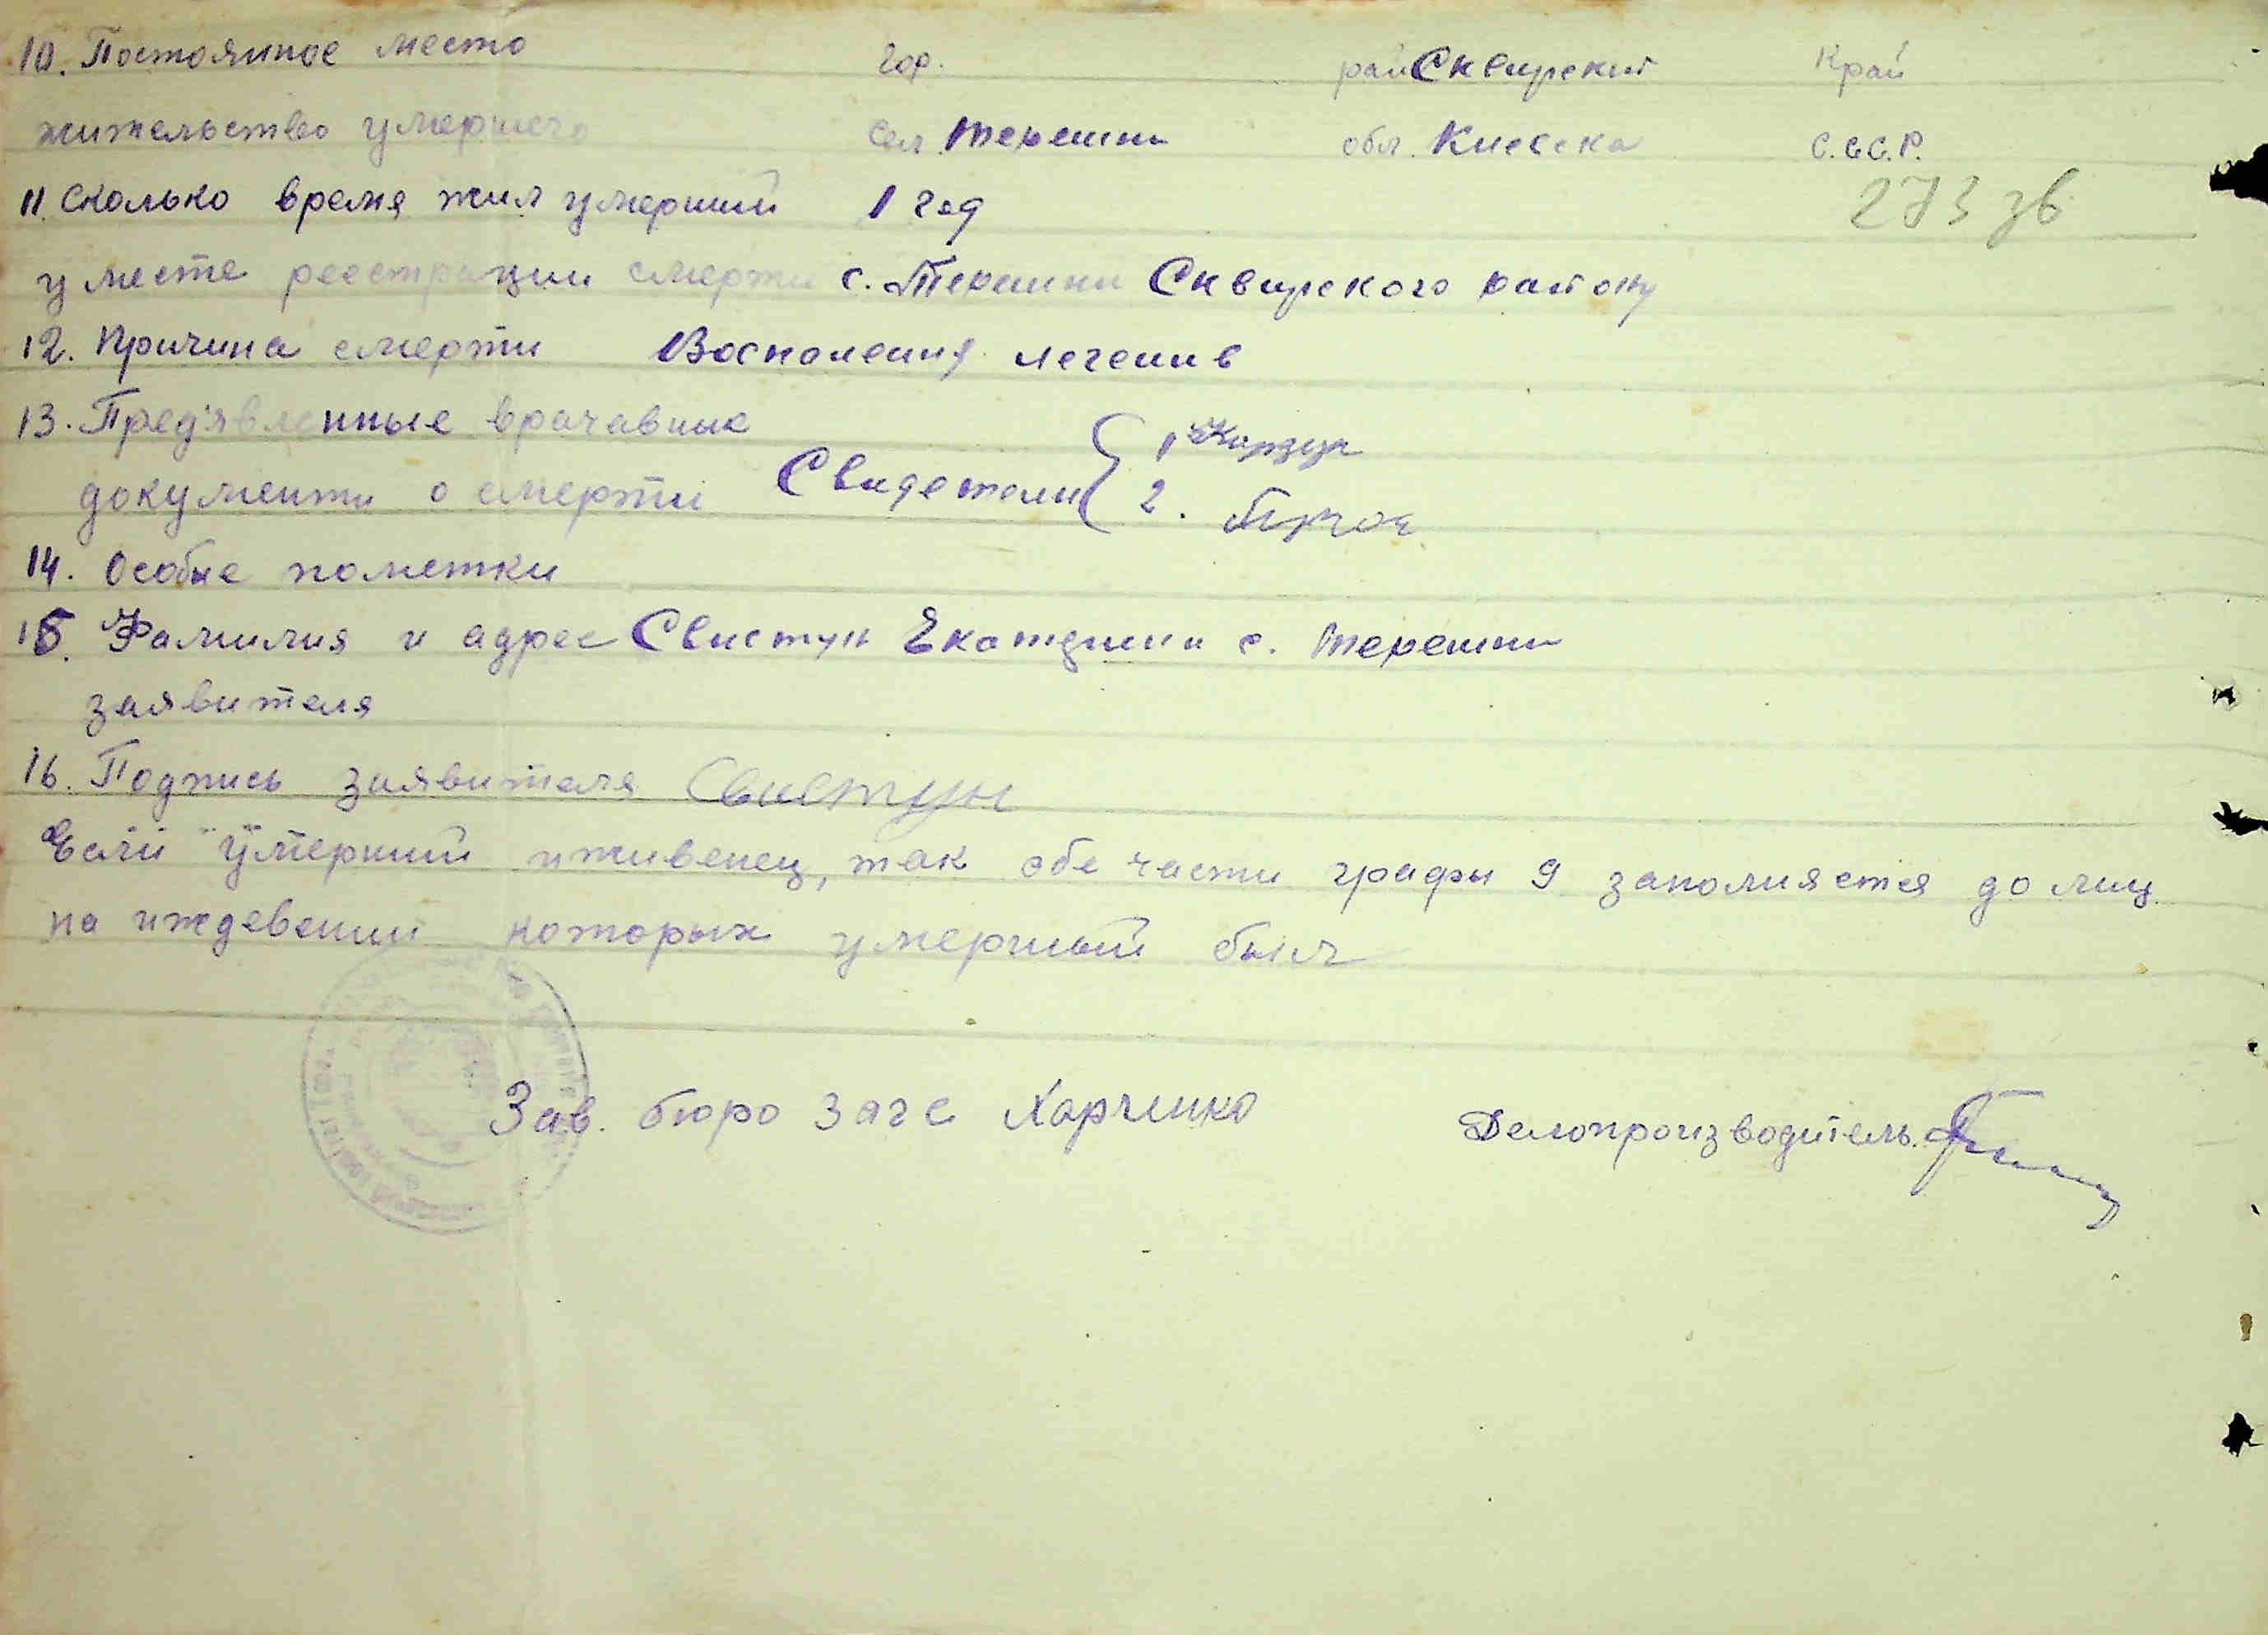 10. Постоянное место гор. рай Сквирский Край
жительство умершего сел. Терешки обл. Киевска С.С.С.Р.
11. Сколько время жил умерший 1 год 273 зв
у месте реестрации смерти с. Терешки Сквирского району
12. Причина смерти Восполения легенив
13. Пред'явленные врачавные 1
документи о смерти Свидетели 2.
14. Особые пометки
15. Фамилия и адрес Свистун Екатерини с. Терешки
заявителя
16. Подпись заявителя Свистун
Если умерший иживенец, так обе части графы 9 заполняется до лиц
на иждевении которых умерший был
Зав. бюро загс Харченко Делопроизводитель.